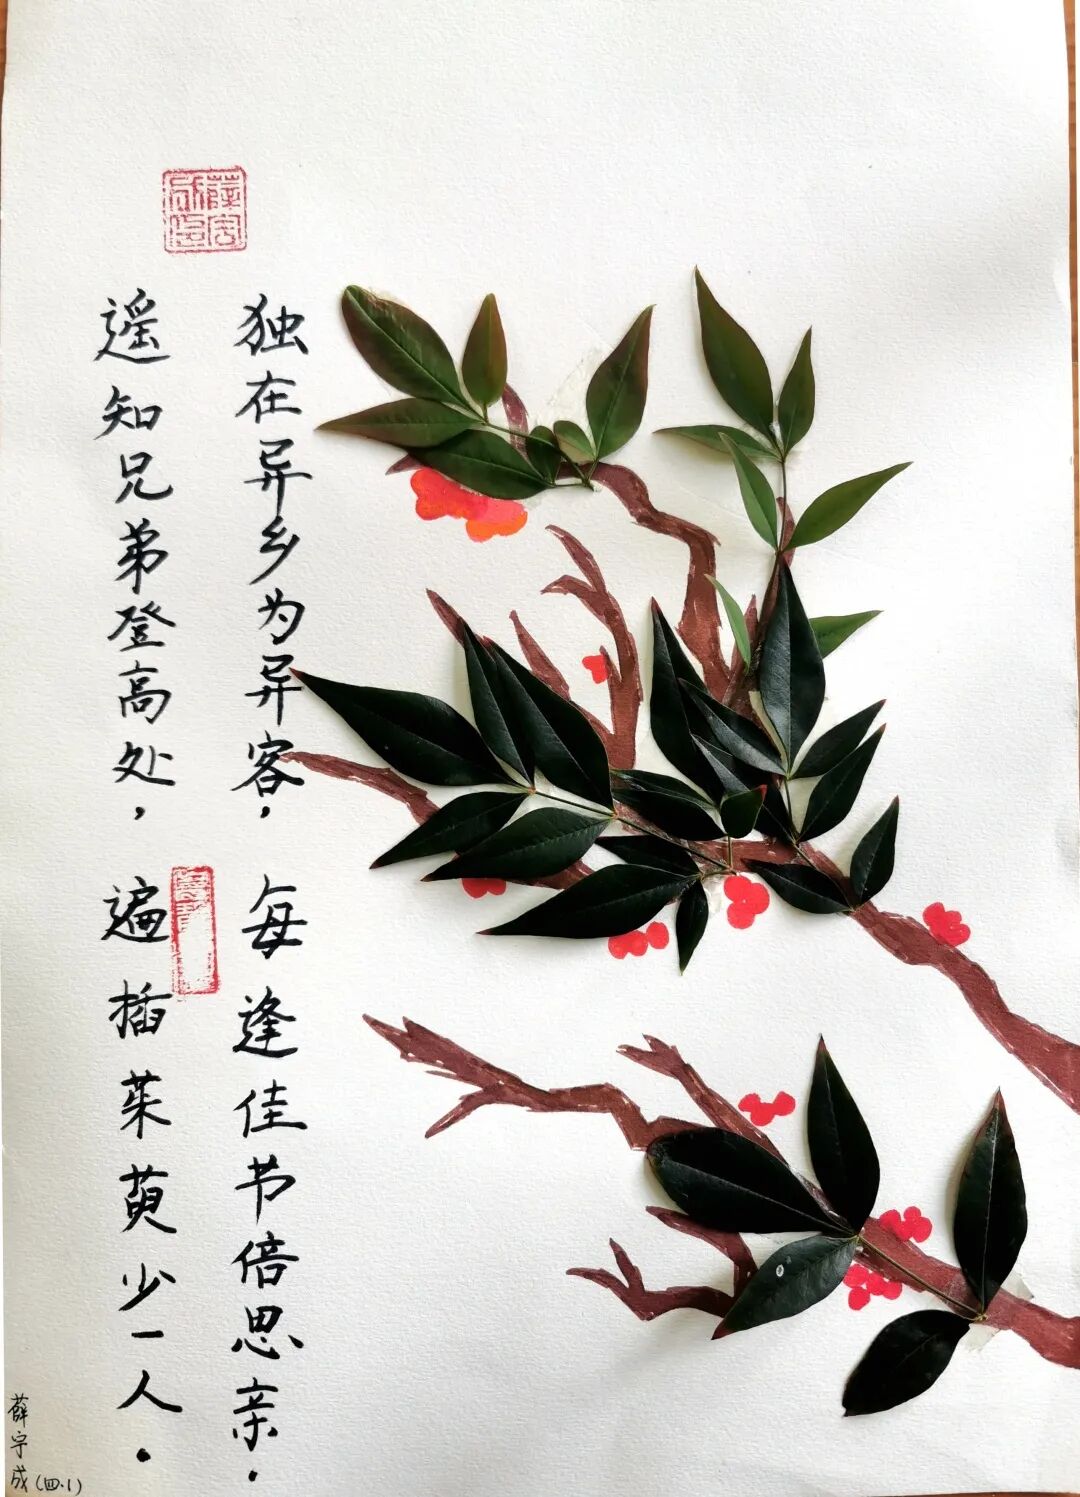 独在异乡为异客，每逢佳节倍思亲.
遥知兄弟登高处，遍插茱萸少一人.
薛宇成(四.1)